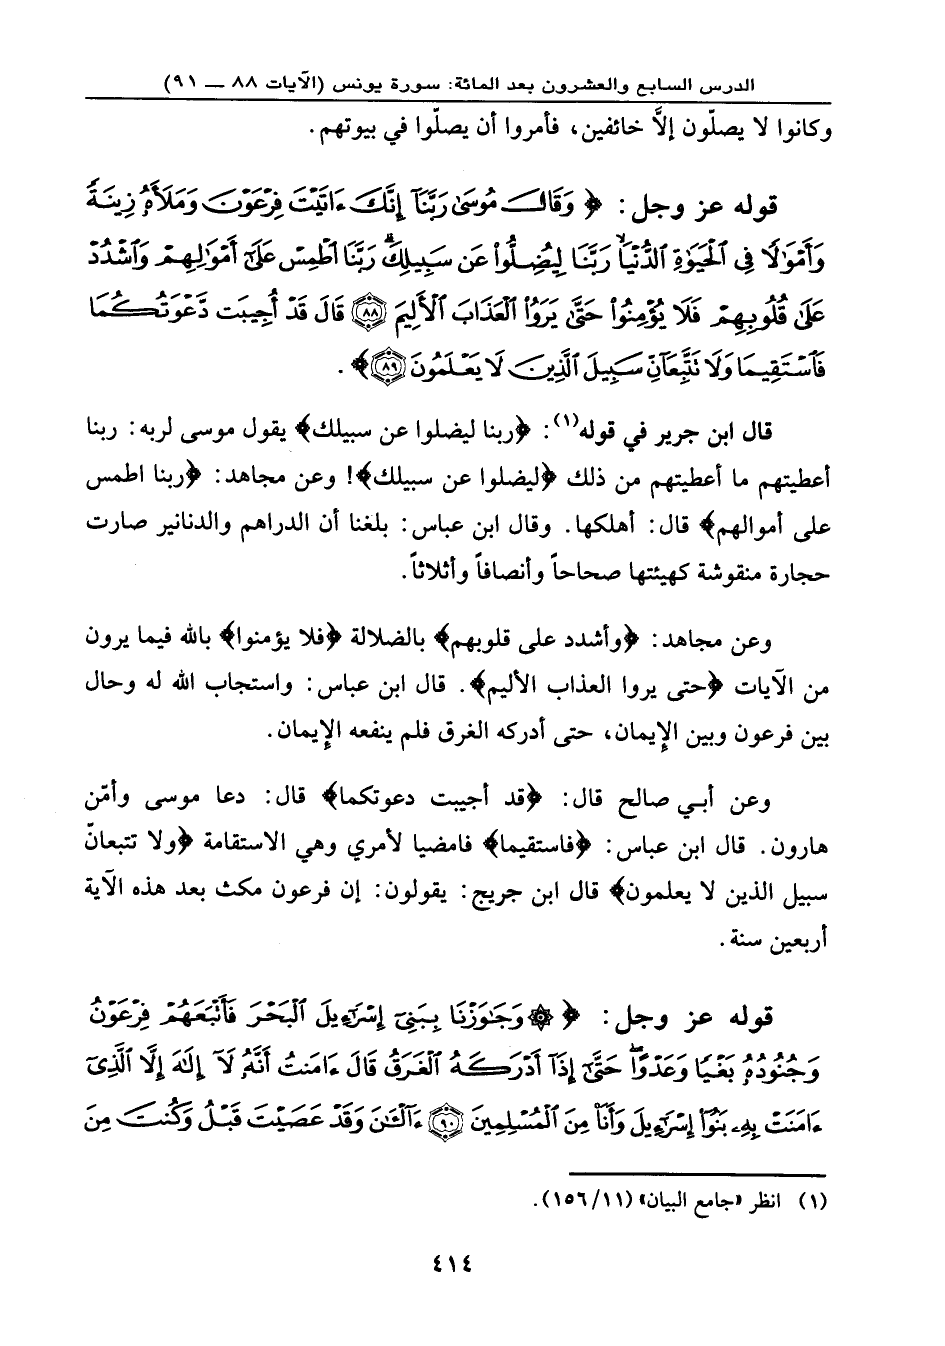 الدرس السابع والعشرون بعد المائة: سورة يونس (الآيات ٨٨ ــ ٩١)
وكانوا لا يصلّون إلاَّ خائفين، فأمروا أن يصلّوا في بيوتهم.
قوله عز وجل: ﴿وَقَالَ مُوسَىٰ رَبَّنَآ إِنَّكَ ءَاتَيْتَ فِرْعَوْنَ وَمَلَأَهُۥ زِينَةً
وَأَمْوَٰلًا فِى ٱلْحَيَوٰةِ ٱلدُّنْيَا ۙ رَبَّنَا لِيُضِلُّوا۟ عَن سَبِيلِكَ ۖ رَبَّنَا ٱطْمِسْ عَلَىٰٓ أَمْوَٰلِهِمْ وَٱشْدُدْ
عَلَىٰ قُلُوبِهِمْ فَلَا يُؤْمِنُوا۟ حَتَّىٰ يَرَوُا۟ ٱلْعَذَابَ ٱلْأَلِيمَ ٨٨ قَالَ قَدْ أُجِيبَت دَّعْوَتُكُمَا
فَٱسْتَقِيمَا وَلَا تَتَّبِعَآنِّ سَبِيلَ ٱلَّذِينَ لَا يَعْلَمُونَ ٨٩﴾.
قال ابن جرير في قوله(١): ﴿ربنا ليضلوا عن سبيلك﴾ يقول موسى لربه: ربنا
أعطيتهم ما أعطيتهم من ذلك ﴿ليضلوا عن سبيلك﴾! وعن مجاهد: ﴿ربنا اطمس
على أموالهم﴾ قال: أهلكها. وقال ابن عباس: بلغنا أن الدراهم والدنانير صارت
حجارة منقوشة كهيئتها صحاحاً وأنصافاً وأثلاثاً.
وعن مجاهد: ﴿وأشدد على قلوبهم﴾ بالضلالة ﴿فلا يؤمنوا﴾ بالله فيما يرون
من الآيات ﴿حتى يروا العذاب الأليم﴾. قال ابن عباس: واستجاب الله له وحال
بين فرعون وبين الإيمان، حتى أدركه الغرق فلم ينفعه الإيمان.
وعن أبي صالح قال: ﴿قد أجيبت دعوتكما﴾ قال: دعا موسى وأمّن
هارون. قال ابن عباس: ﴿فاستقيما﴾ فامضيا لأمري وهي الاستقامة ﴿ولا تتبعانّ
سبيل الذين لا يعلمون﴾ قال ابن جريج: يقولون: إن فرعون مكث بعد هذه الآية
أربعين سنة.
قوله عز وجل: ﴿۞ وَجَٰوَزْنَا بِبَنِىٓ إِسْرَٰٓءِيلَ ٱلْبَحْرَ فَأَتْبَعَهُمْ فِرْعَوْنُ
وَجُنُودُهُۥ بَغْيًا وَعَدْوًا ۖ حَتَّىٰٓ إِذَآ أَدْرَكَهُ ٱلْغَرَقُ قَالَ ءَامَنتُ أَنَّهُۥ لَآ إِلَٰهَ إِلَّا ٱلَّذِىٓ
ءَامَنَتْ بِهِۦ بَنُوٓا۟ إِسْرَٰٓءِيلَ وَأَنَا۠ مِنَ ٱلْمُسْلِمِينَ ٩٠ ءَآلْـَٰٔنَ وَقَدْ عَصَيْتَ قَبْلُ وَكُنتَ مِنَ
(١) انظر «جامع البيان» (١٥٦/١١).
٤١٤